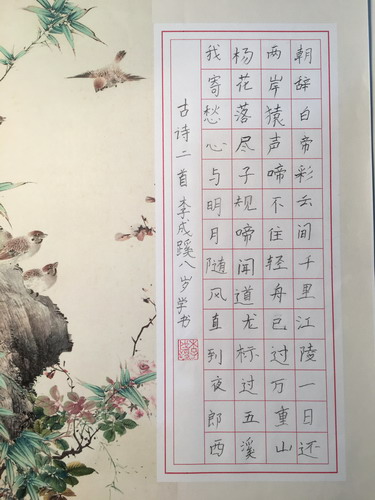 朝辞白帝彩云间千里江陵一日还
两岸猿声啼不住轻舟已过万重山
杨花落尽子规啼闻道龙标过五溪
我寄愁心与明月随风直到夜郎西
古诗二首 李成蹊八岁学书